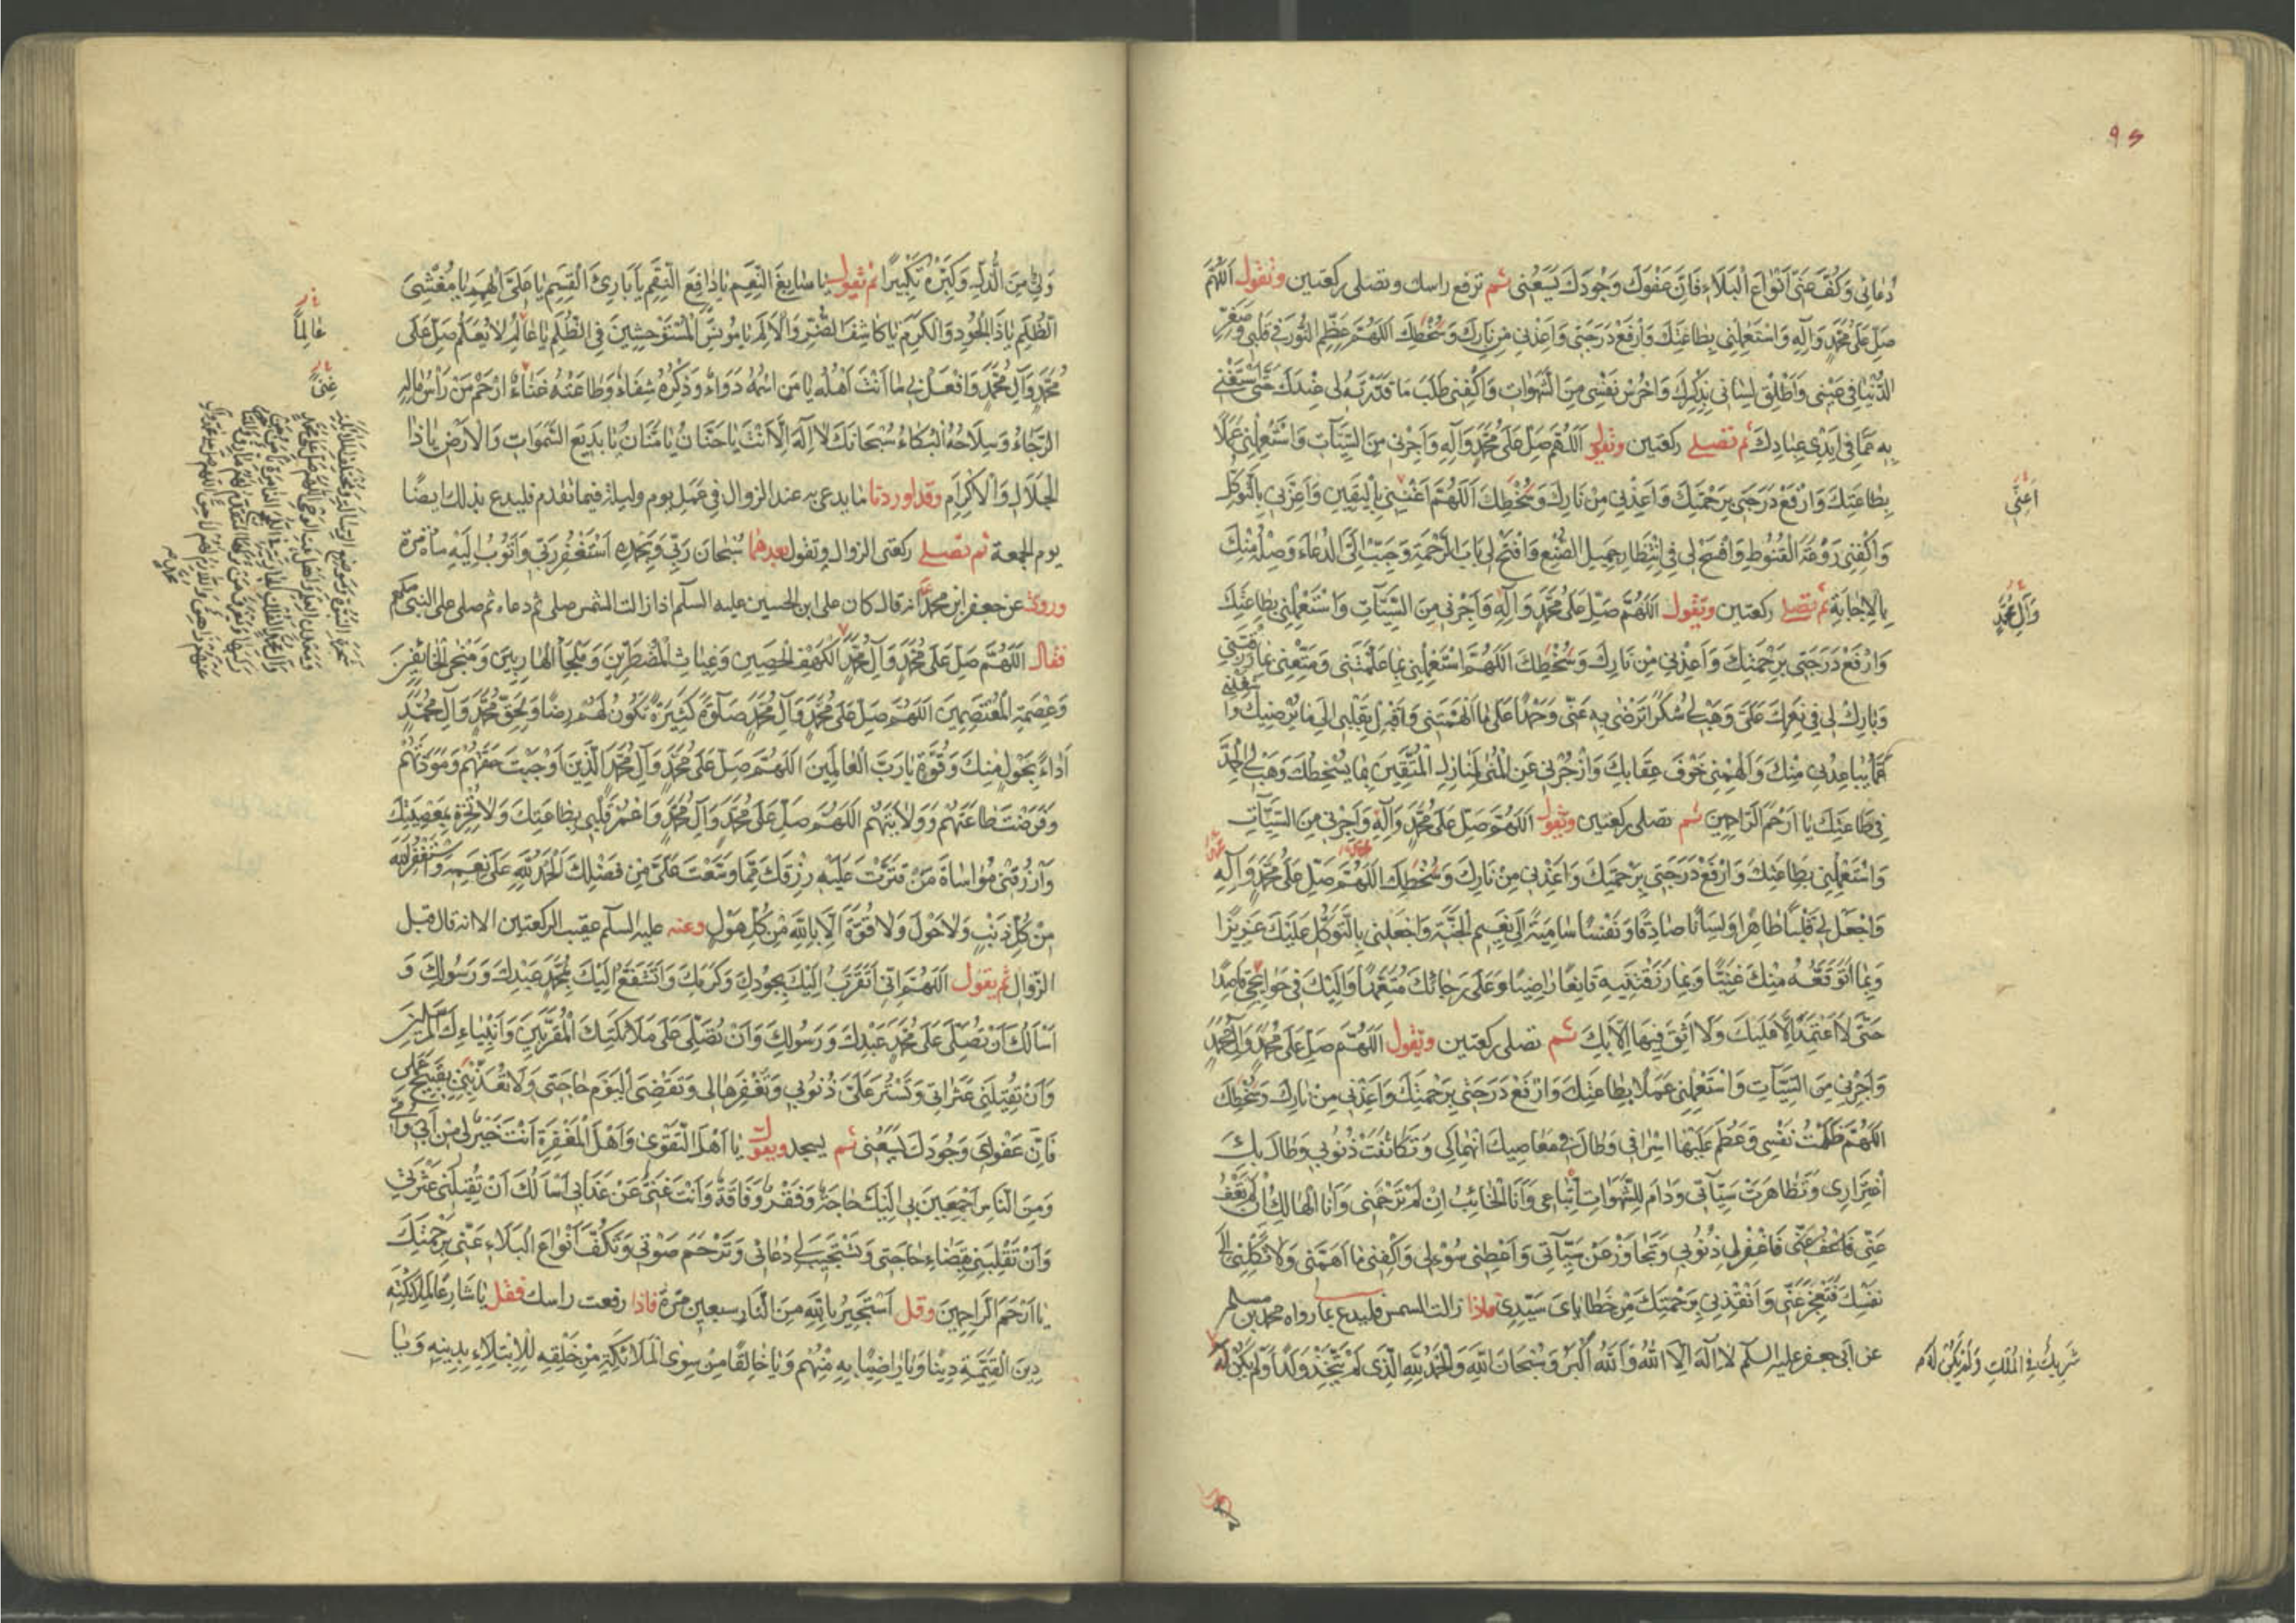 دُعائی وَکُفَّ عَنّی اَنْواعَ الْبَلاءِ فَاِنَّ عَفْوَكَ وَجُودَكَ یَسَعُنی ثم ترفع راسك وتصلی رکعتین وتقول اَللّٰهُمَّ
صَلِّ عَلی مُحَمَّدٍ وَآلِهِ وَاسْتَعْمِلْنی بِطاعَتِكَ وَارْفَعْ دَرَجَتی وَاَعِذْنی مِنْ نارِكَ وَسَخَطِكَ اَللّٰهُمَّ عَظِّمِ النُّورَ فی قَلْبی وَصَغِّرِ
الدُّنْیا فی عَیْنی وَاَطْلِقْ لِسانی بِذِکْرِكَ وَاحْرُسْ نَفْسی مِنَ الشَّهَواتِ وَاکْفِنی طَلَبَ ما قَدَّرْتَهُ لی عِنْدَكَ حَتّی اَسْتَغْنِیَ
بِهِ عَمّا فی اَیْدی عِبادِكَ ثم تصلی رکعتین وتقول اَللّٰهُمَّ صَلِّ عَلی مُحَمَّدٍ وَآلِهِ وَاَجِرْنی مِنَ السَّیِّئاتِ وَاسْتَعْمِلْنی عَمَلًا
بِطاعَتِكَ وَارْفَعْ دَرَجَتی بِرَحْمَتِكَ وَاَعِذْنی مِنْ نارِكَ وَسَخَطِكَ اَللّٰهُمَّ اَغْنِنی بِالْیَقینِ وَاَعِزَّنی بِالتَّوَکُّلِ
اَعِنّی
وَاکْفِنی رَوْعَةَ الْقُنُوطِ وَافْسَحْ لی فِی انْتِظارِ جَمیلِ الصُّنْعِ وَافْتَحْ لی بابَ الرَّحْمَةِ وَحَبِّبْ اِلَیَّ الدُّعاءَ وَصِلْهُ مِنْكَ
بِالْاِجابَةِ ثم تصلی رکعتین وتقول اَللّٰهُمَّ صَلِّ عَلی مُحَمَّدٍ وَآلِهِ وَاَجِرْنی مِنَ السَّیِّئاتِ وَاسْتَعْمِلْنی بِطاعَتِكَ
وَآلِ مُحَمَّدٍ
وَارْفَعْ دَرَجَتی بِرَحْمَتِكَ وَاَعِذْنی مِنْ نارِكَ وَسَخَطِكَ اَللّٰهُمَّ اسْتَعْمِلْنی بِما عَلَّمْتَنی وَمَتِّعْنی بِما رَزَقْتَنی
وَبارِكْ لی فی نِعَمِكَ عَلَیَّ وَهَبْ لی شُکْرًا تَرْضی بِهِ عَنّی وَحَمْدًا عَلی ما اَلْهَمْتَنی وَاَقْبِلْ بِقَلْبی اِلی ما یُرْضیكَ وَاشْغَلْنی
عَمّا یُباعِدُنی مِنْكَ وَاَلْهِمْنی خَوْفَ عِقابِكَ وَازْجُرْنی عَنِ الْمُنی لِمَنازِلِ الْمُتَّقینَ بِما یُسْخِطُكَ وَهَبْ لِیَ الْجِدَّ
فی طاعَتِكَ یا اَرْحَمَ الرّاحِمینَ ثم تصلی رکعتین وتقول اَللّٰهُمَّ صَلِّ عَلی مُحَمَّدٍ وَآلِهِ وَاَجِرْنی مِنَ السَّیِّئاتِ
وَاسْتَعْمِلْنی بِطاعَتِكَ وَارْفَعْ دَرَجَتی بِرَحْمَتِكَ وَاَعِذْنی مِنْ نارِكَ وَسَخَطِكَ اَللّٰهُمَّ صَلِّ عَلی مُحَمَّدٍ وَآلِهِ
وَاجْعَلْ لی قَلْبًا طاهِرًا وَلِسانًا صادِقًا وَنَفْسًا سامِیَةً اِلی نَعیمِ الْجَنَّةِ وَاجْعَلْنی بِالتَّوَکُّلِ عَلَیْكَ عَزیزًا
وَبِما اَتَوَقَّعُهُ مِنْكَ غَنِیًّا وَبِما رَزَقْتَنیهِ قانِعًا راضِیًا وَعَلی رَجائِكَ مُتَعَمِّدًا وَاِلَیْكَ فی حَوائِجی قاصِدًا
حَتّی لا اَعْتَمِدَ اِلّا عَلَیْكَ وَلا اَثِقَ فیها اِلّا بِكَ ثم تصلی رکعتین وتقول اَللّٰهُمَّ صَلِّ عَلی مُحَمَّدٍ وَآلِ مُحَمَّدٍ
وَاَجِرْنی مِنَ السَّیِّئاتِ وَاسْتَعْمِلْنی عَمَلًا بِطاعَتِكَ وَارْفَعْ دَرَجَتی بِرَحْمَتِكَ وَاَعِذْنی مِنْ نارِكَ وَسَخَطِكَ
اَللّٰهُمَّ ظَلَمْتُ نَفْسی وَعَظُمَ عَلَیْها اِسْرافی وَطالَ فی مَعاصیكَ انْهِماکی وَتَکاثَفَتْ ذُنُوبی وَطالَ بِكَ
اغْتِراری وَتَظاهَرَتْ سَیِّئاتی وَدامَ لِلشَّهَواتِ اتِّباعی وَاَنَا الْخائِبُ اِنْ لَمْ تَرْحَمْنی وَاَنَا الْهالِكُ اِنْ لَمْ تَعْفُ
عَنّی فَاعْفُ عَنّی فَاغْفِرْ لی ذُنُوبی وَتَجاوَزْ عَنْ سَیِّئاتی وَاَعْطِنی سُؤْلی وَاکْفِنی ما اَهَمَّنی وَلا تَکِلْنی اِلی
نَفْسی فَتَعْجِزَ عَنّی وَاَنْقِذْنی بِرَحْمَتِكَ مِنْ خَطایایَ سَیِّدی فاذا زالت الشمس فلیدع بما رواه محمد بن مسلم
عن ابی جعفر علیه السلم لا اِلهَ اِلَّا اللهُ وَاللهُ اَکْبَرُ وَسُبْحانَ اللهِ وَالْحَمْدُ لِلّهِ الَّذی لَمْ یَتَّخِذْ وَلَدًا وَلَمْ یَکُنْ لَهُ
شَریكٌ فِی الْمُلْكِ وَلَمْ یَکُنْ لَهُ
وَلِیٌّ مِنَ الذُّلِّ وَکَبِّرْهُ تَکْبیرًا ثم تقول یا سابِغَ النِّعَمِ یا دافِعَ النِّقَمِ یا بارِئَ الْقَسَمِ یا عَلِیَّ الْهِمَمِ یا مُغْشِیَ
الظُّلَمِ یا ذَا الْجُودِ وَالْکَرَمِ یا کاشِفَ الضُّرِّ وَالْاَلَمِ یا مُونِسَ الْمُسْتَوْحِشینَ فِی الظُّلَمِ یا عالِمُ لا یُعَلَّمُ صَلِّ عَلی
عالِمًا
مُحَمَّدٍ وَآلِ مُحَمَّدٍ وَافْعَلْ بی ما اَنْتَ اَهْلُهُ یا مَنِ اسْمُهُ دَواءٌ وَذِکْرُهُ شِفاءٌ وَطاعَتُهُ غَناءٌ اِرْحَمْ مَنْ رَأْسُ مالِهِ
غِنیً
الرَّجاءُ وَسِلاحُهُ الْبُکاءُ سُبْحانَكَ لا اِلهَ اِلّا اَنْتَ یا حَنّانُ یا مَنّانُ یا بَدیعَ السَّمواتِ وَالْاَرْضِ یا ذَا
الْجَلالِ وَالْاِکْرامِ وقد اوردنا ما یدعی به عند الزوال فی عمل یوم ولیلة فیما تقدم فلیدع بذلك ایضًا
یوم الجمعة ثم تصلی رکعتی الزوال وتقول بعدهما سُبْحانَ رَبّی وَبِحَمْدِهِ اَسْتَغْفِرُ رَبّی وَاَتُوبُ اِلَیْهِ مأة مرة
وروی عن جعفر ابن محمد انه قال کان علی ابن الحسین علیه السلم اذا زالت الشمس صلی ثم دعاء ثم صلی علی النبی
فقال اَللّٰهُمَّ صَلِّ عَلی مُحَمَّدٍ وَآلِ مُحَمَّدٍ الْکَهْفِ الْحَصینِ وَغِیاثِ الْمُضْطَرّینَ وَمَلْجَأِ الْهارِبینَ وَمَنْجَی الْخائِفینَ
وَعِصْمَةِ الْمُعْتَصِمینَ اَللّٰهُمَّ صَلِّ عَلی مُحَمَّدٍ وَآلِ مُحَمَّدٍ صَلوةً کَثیرَةً تَکُونُ لَهُمْ رِضًا وَلِحَقِّ مُحَمَّدٍ وَآلِ مُحَمَّدٍ
اَداءً بِحَوْلٍ مِنْكَ وَقُوَّةٍ یا رَبَّ الْعالَمینَ اَللّٰهُمَّ صَلِّ عَلی مُحَمَّدٍ وَآلِ مُحَمَّدٍ الَّذینَ اَوْجَبْتَ حَقَّهُمْ وَمَوَدَّتَهُمْ
وَفَرَضْتَ طاعَتَهُمْ وَوِلایَتَهُمْ اَللّٰهُمَّ صَلِّ عَلی مُحَمَّدٍ وَآلِ مُحَمَّدٍ وَاعْمُرْ قَلْبی بِطاعَتِكَ وَلا تُخْزِهِ بِمَعْصِیَتِكَ
وَارْزُقْنی مُواساةَ مَنْ قَتَّرْتَ عَلَیْهِ رِزْقَكَ مِمّا وَسَّعْتَ عَلَیَّ مِنْ فَضْلِكَ اَلْحَمْدُ لِلّهِ عَلی نِعَمِهِ وَاَسْتَغْفِرُ اللهَ
مِنْ کُلِّ ذَنْبٍ وَلا حَوْلَ وَلا قُوَّةَ اِلّا بِاللهِ مِنْ کُلِّ هَوْلٍ وعنه علیه السلم عقیب الرکعتین الا انه قال قبل
الزوال ثم یقول اَللّٰهُمَّ اِنّی اَتَقَرَّبُ اِلَیْكَ بِجُودِكَ وَکَرَمِكَ وَاَتَشَفَّعُ اِلَیْكَ بِمُحَمَّدٍ عَبْدِكَ وَرَسُولِكَ وَ
اَسْأَلُكَ اَنْ تُصَلِّیَ عَلی مُحَمَّدٍ عَبْدِكَ وَرَسُولِكَ وَاَنْ تُصَلِّیَ عَلی مَلائِکَتِكَ الْمُقَرَّبینَ وَاَنْبِیاءِكَ الْمُرْسَلینَ
وَاَنْ تُقیلَنی عَثْراتی وَتَسْتُرَ عَلَیَّ ذُنُوبی وَتَغْفِرَها لی وَتَقْضِیَ الْیَوْمَ حاجَتی وَلا تُعَذِّبْنی بِقَبیحِ عَمَلی
فَاِنَّ عَفْوَكَ وَجُودَكَ یَسَعُنی ثم یسجد ویقول یا اَهْلَ التَّقْوی وَاَهْلَ الْمَغْفِرَةِ اَنْتَ خَیْرٌ لی مِنْ اَبی وَاُمّی
وَمِنَ النّاسِ اَجْمَعینَ بی اِلَیْكَ حاجَةٌ وَفَقْرٌ وَفاقَةٌ وَاَنْتَ غَنِیٌّ عَنْ عَذابی اَسْأَلُكَ اَنْ تُقیلَنی عَثْرَتی
وَاَنْ تَقْلِبَنی بِقَضاءِ حاجَتی وَتَسْتَجیبَ لی دُعائی وَتَرْحَمَ صَوْتی وَتَکُفَّ اَنْواعَ الْبَلاءِ عَنّی بِرَحْمَتِكَ
یا اَرْحَمَ الرّاحِمینَ وقل اَسْتَجیرُ بِاللهِ مِنَ النّارِ سبعین مرّة فاذا رفعت راسك فقل یا شارِعًا لِمَلائِکَتِهِ
دینَ الْقَیِّمَةِ دینًا وَیا راضِیًا بِهِ مِنْهُمْ وَیا خالِقًا مِنْ سِوَی الْمَلائِکَةِ مِنْ خَلْقِهِ لِلْاِبْتِلاءِ بِدینِهِ وَیا